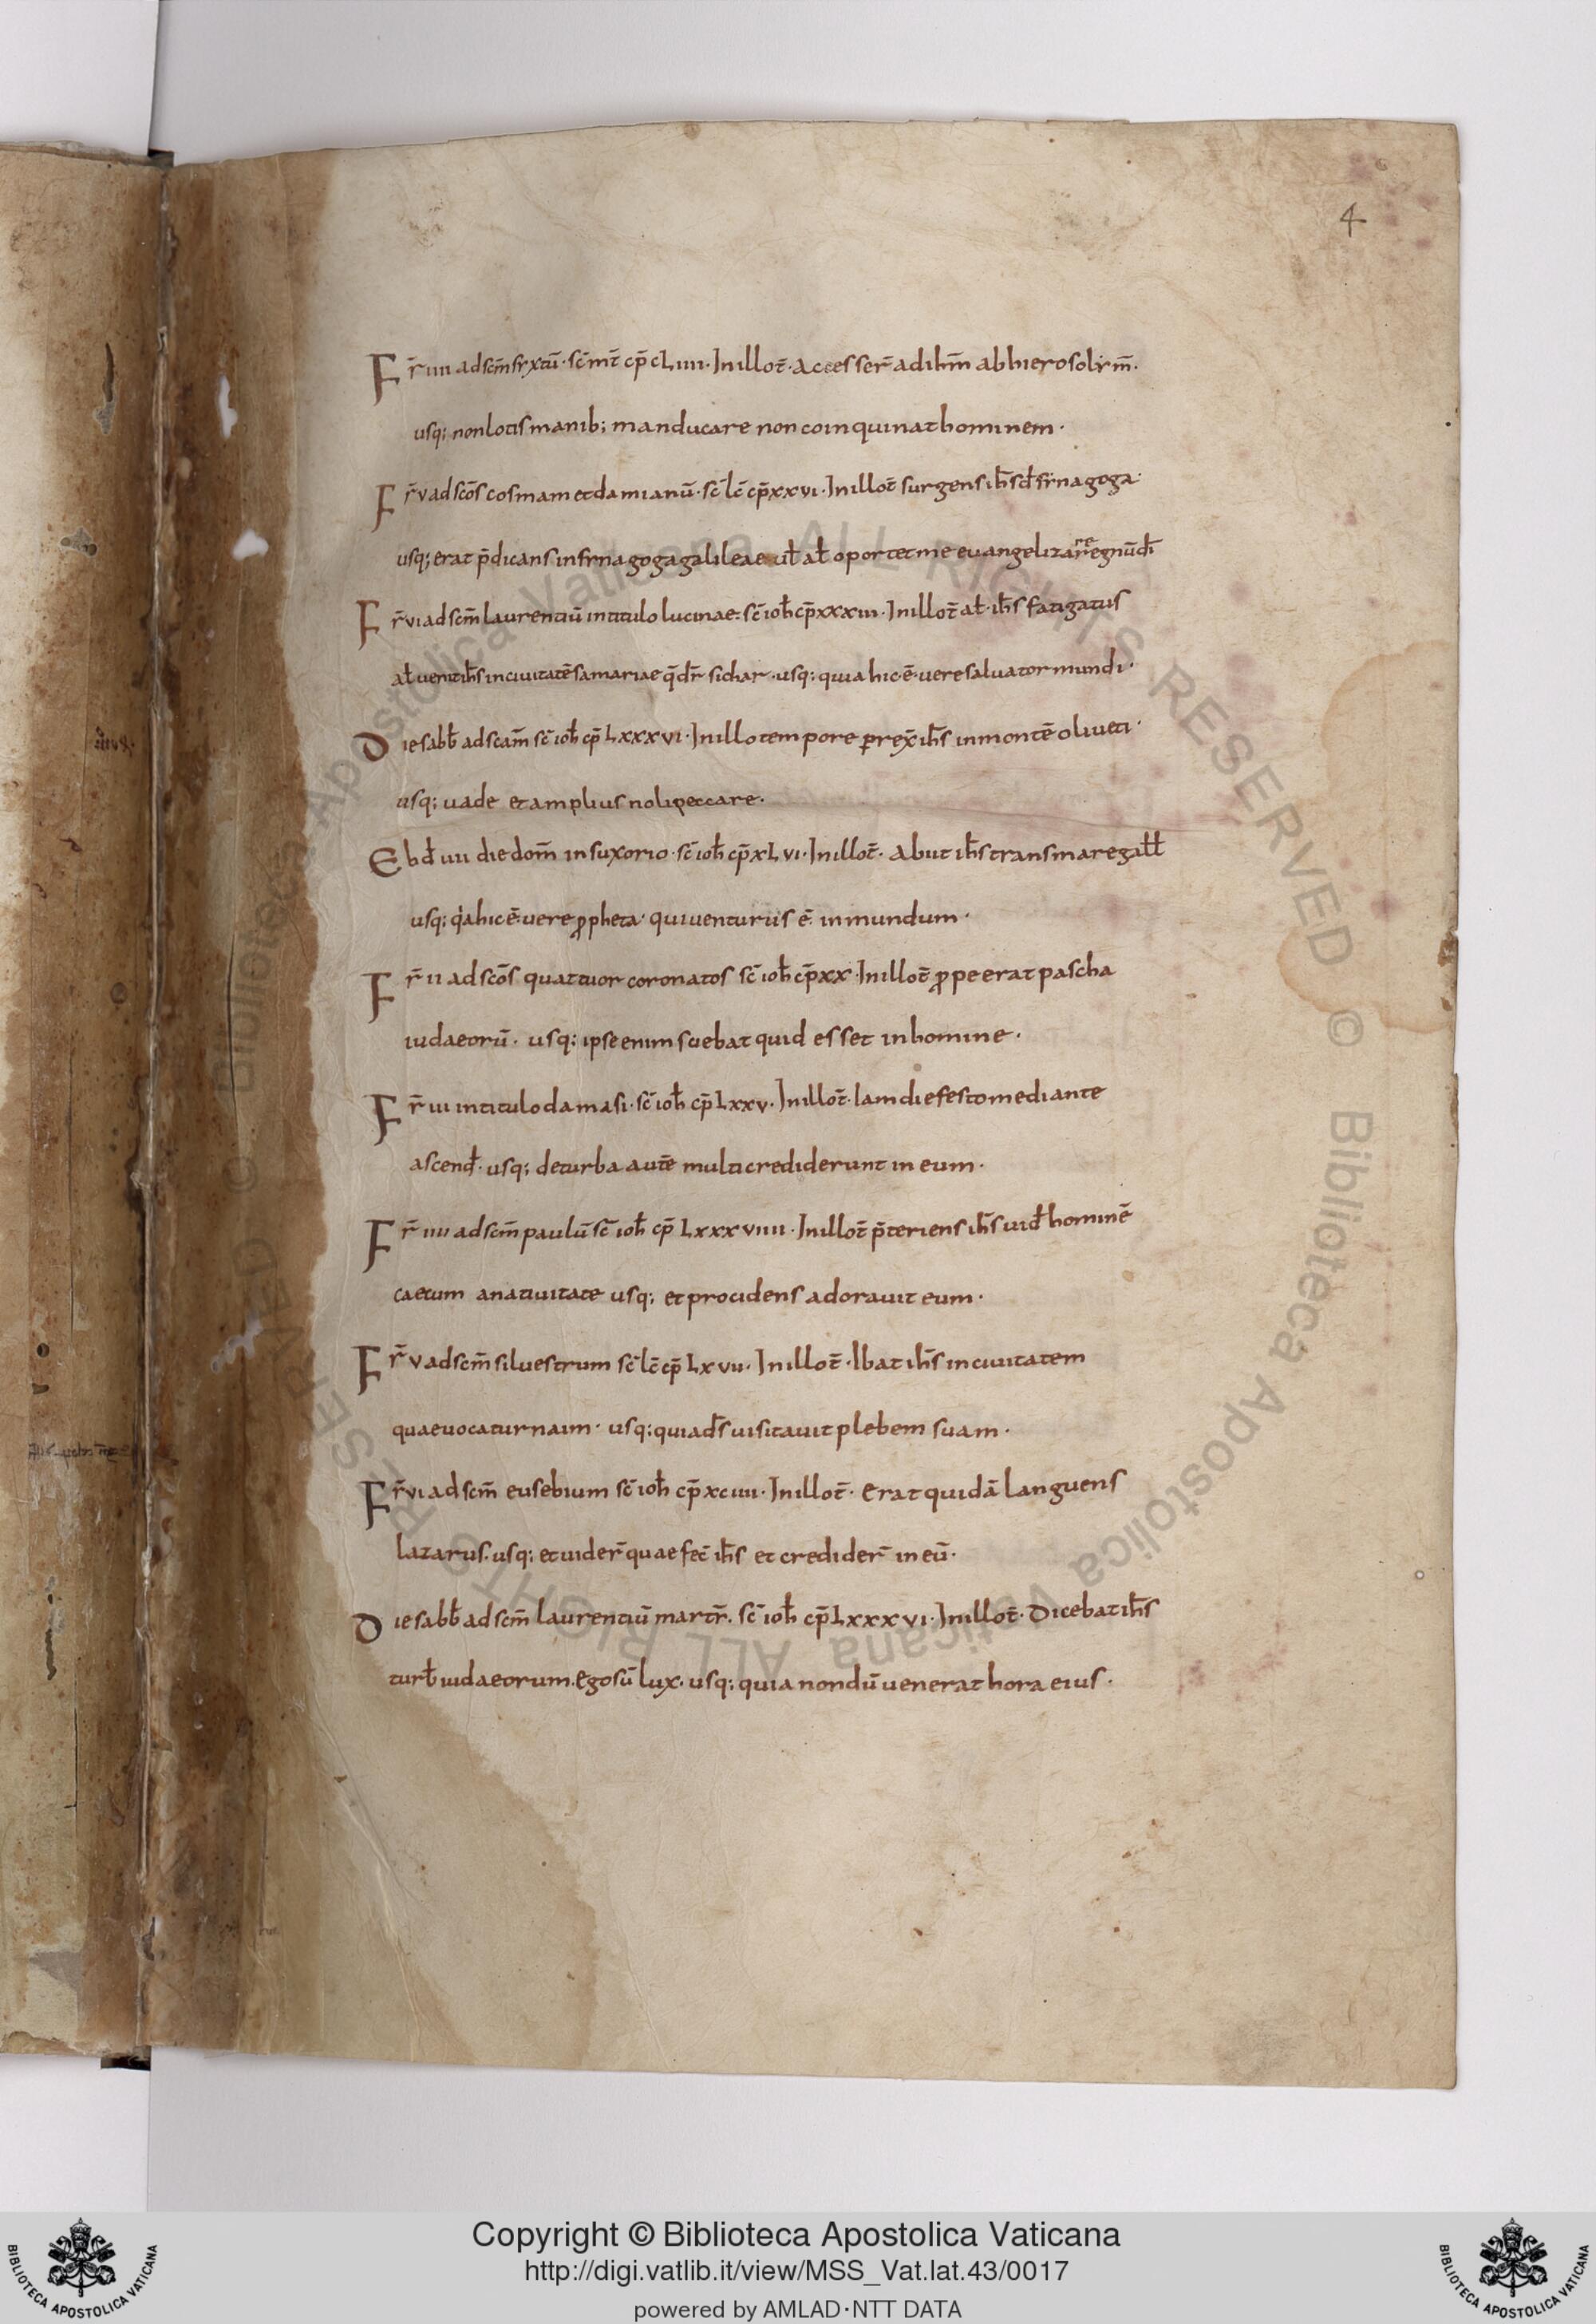 4
Fr̄ iiii ad scm̄ syxtū · sc̄ mt̄ cp̄ cLiiii · In illot̄ · accesser̄ ad ihm̄ ab hierosolym̄ ·
usq; non lotis manib; manducare non coinquinat hominem ·
Fr̄ v ad scōs cosmam et damianū · sc̄ lc̄ cp̄ xxvi · In illot̄ surgens ih̄s dē synagoga ·
usq; erat p̄dicans in synagoga galileae ul̄ al̄ oportet me euangelizare regnū dī
Fr̄ vi ad scm̄ laurentiū in titulo lucinae · sc̄ ioh̄ cp̄ xxxiii · In illot̄ al̄ · ih̄s fatigatus
al̄ uenit ih̄s in ciuitatē samariae q̄ dr̄ sichar · usq; quia hic ē uere saluator mundi ·
Die sabb̄ ad scam̄ sc̄ ioh̄ cp̄ Lxxxvi · In illo tempore perrex̄ ih̄s in montē oliueti ·
usq; uade et amplius noli peccare ·
Ebd̄ iiii die dom̄ in suxorio · sc̄ ioh̄ cp̄ xLvi · In illot̄ · abiit ih̄s trans mare gall̄
usq; qa hic ē uere propheta · qui uenturus ē in mundum ·
Fr̄ ii ad scōs quattuor coronatos sc̄ ioh̄ cp̄ xx · In illot̄ prope erat pascha
iudaeorū · usq; ipse enim sciebat quid esset in homine ·
Fr̄ iii in titulo damasi · sc̄ ioh̄ cp̄ Lxxv · In illot̄ · Iam die festo mediante
ascend̄ · usq; de turba autē multi crediderunt in eum ·
Fr̄ iiii ad scm̄ paulū sc̄ ioh̄ cp̄ Lxxxviiii · In illot̄ p̄teriens ih̄s uid̄ hominē
caecum a natiuitate usq; et procidens adorauit eum ·
Fr̄ v ad scm̄ siluestrum sc̄ lc̄ cp̄ Lxvii · In illot̄ · Ibat ih̄s in ciuitatem
quae uocatur naim · usq; quia ds̄ uisitauit plebem suam ·
Fr̄ vi ad scm̄ eusebium sc̄ ioh̄ cp̄ xciiii · In illot̄ · Erat quidā languens
lazarus · usq; et uider̄ quae fec̄ ih̄s et credider̄ in eū ·
Die sabb̄ ad scm̄ laurentiū martyr̄ · sc̄ ioh̄ cp̄ Lxxxvi · In illot̄ · Dicebat ih̄s
turb̄ iudaeorum · Ego sū lux · usq; quia nondū uenerat hora eius ·
© Biblioteca Apostolica Vaticana ALL RIGHTS RESERVED © Biblioteca Apostolica Vaticana ALL RIGHTS RESERVED
Copyright © Biblioteca Apostolica Vaticana
http://digi.vatlib.it/view/MSS_Vat.lat.43/0017
powered by AMLAD·NTT DATA
BIBLIOTECA APOSTOLICA VATICANA
BIBLIOTECA APOSTOLICA VATICANA